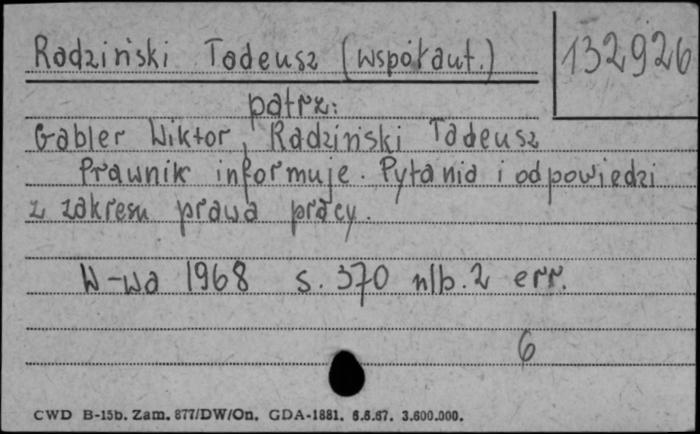 Radziński Tadeusz (współaut.)
132926
patrz:
Gabler Wiktor, Radziński Tadeusz
Prawnik informuje. Pytania i odpowiedzi
z zakresu prawa pracy.
W-wa 1968 s. 370 nlb. 2 err.
6
CWD B-15b. Zam. 877/DW/On. GDA-1881. 6.6.67. 3.600.000.